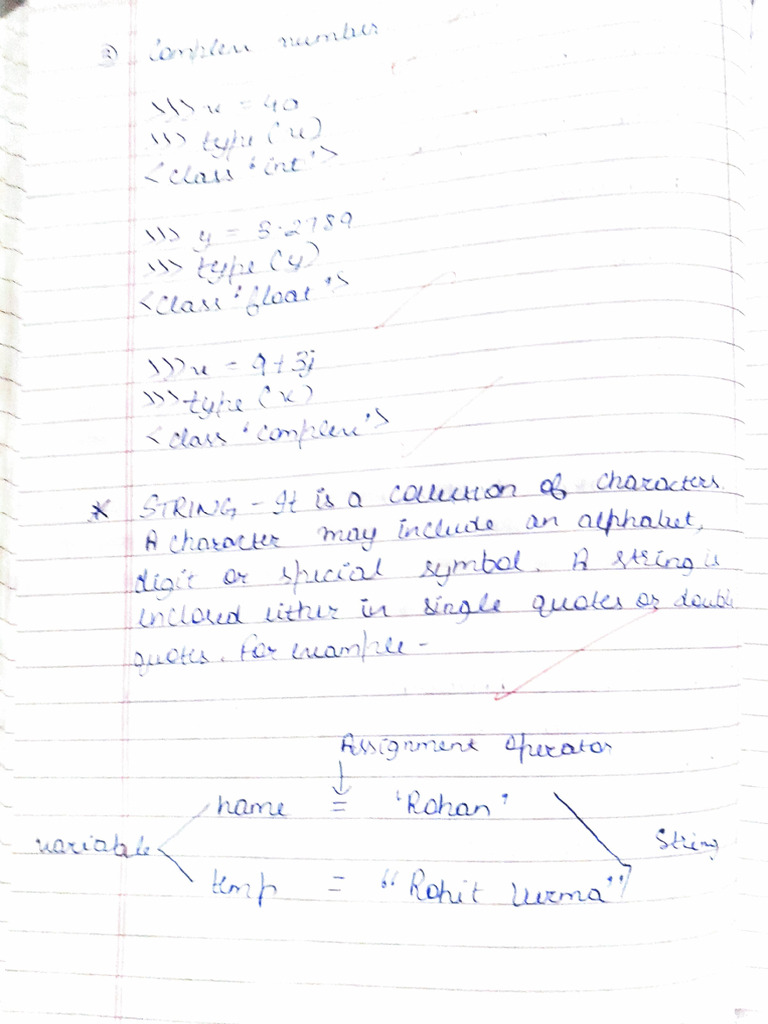 ③ Complex number
>>> x = 40
>>> type (x)
<class 'int'>
>>> y = 5.2789
>>> type (y)
<class 'float'>
>>> x = 9+3j
>>> type (x)
<class 'complex'>
* STRING - It is a collection of characters.
A character may include an alphabet,
digit or special symbol. A string is
enclosed either in single quotes or double
quotes. For example -
Assignment Operator
name = 'Rohan'
variable String
temp = "Rohit Verma"